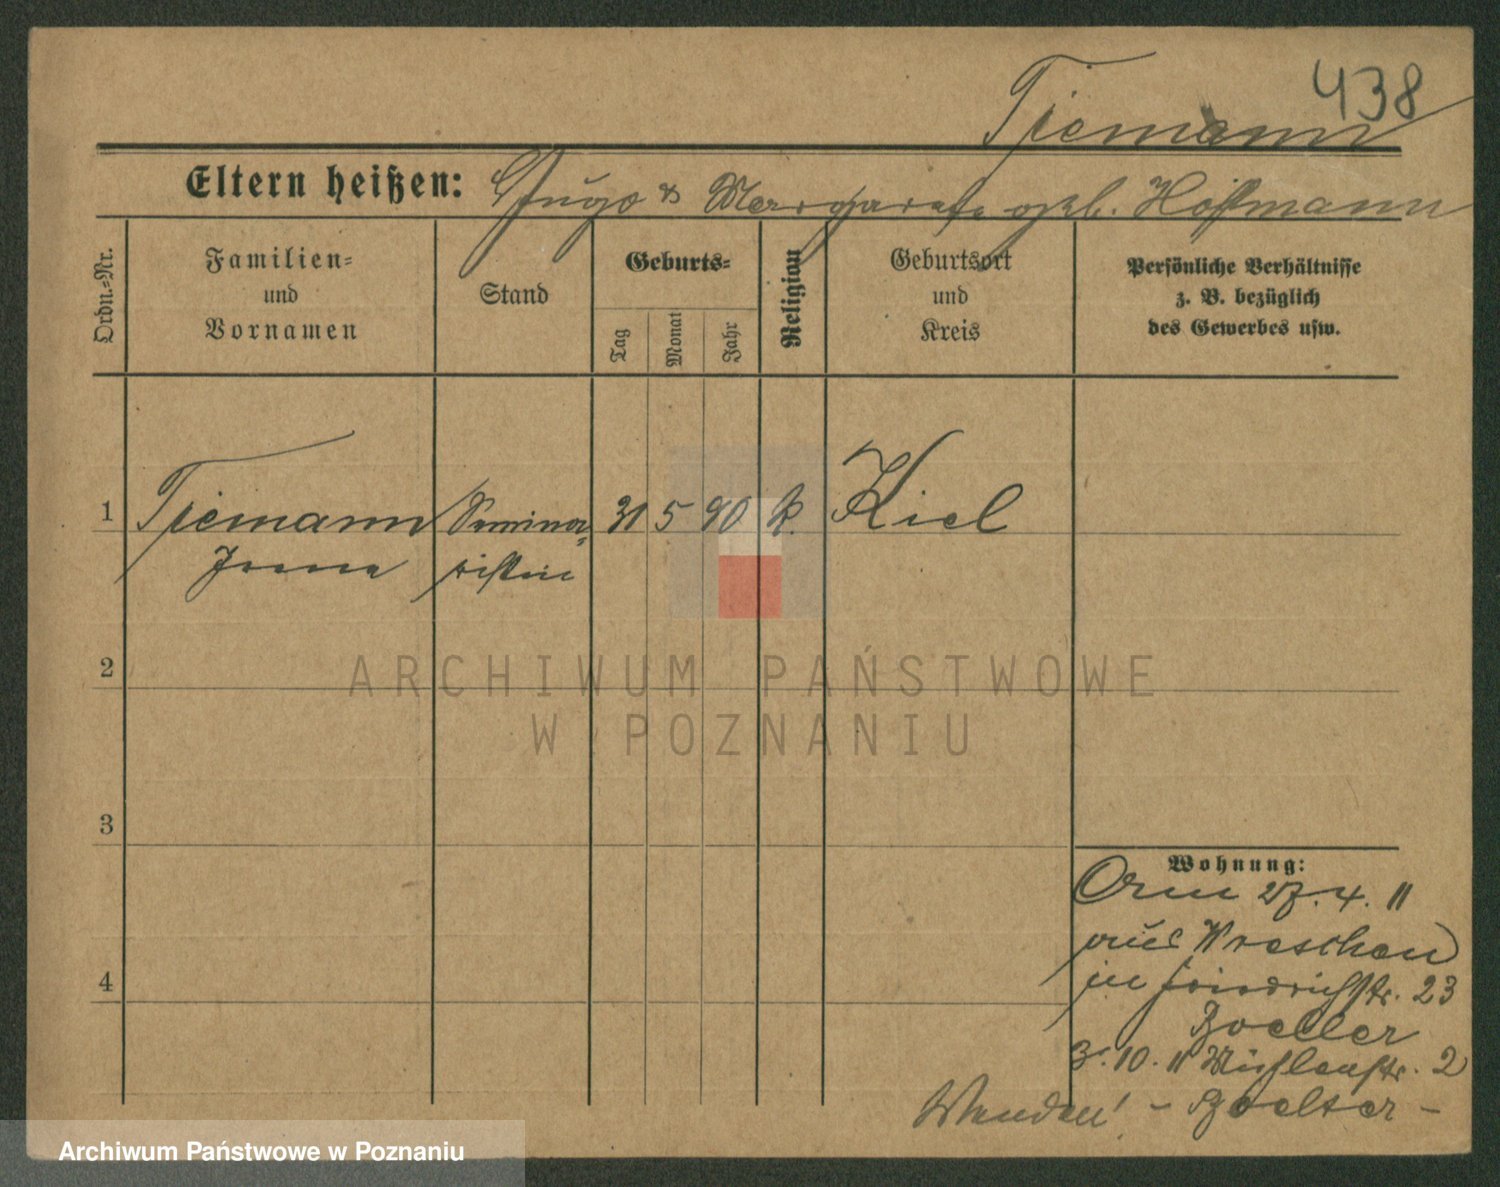 438
Tiemann
Eltern heißen: Hugo & Margarete geb. Hoffmann
Ordn.-Nr.
Familien-
und
Vornamen
Stand
Geburts-
Tag
Monat
Jahr
Religion
Geburtsort
und
Kreis
Persönliche Verhältnisse
z. B. bezüglich
des Gewerbes usw.
1 Tiemann Seminar- 31 5 90 k. Kiel
ristin
2
ARCHIWUM PAŃSTWOWE
W POZNANIU
3
Wohnung:
Am 27. 4. 11
aus Wreschen
4
in Friedrichstr. 23
3. 10. 11 Mühlenstr. 2
Wenden! - Boelter -
Archiwum Państwowe w Poznaniu